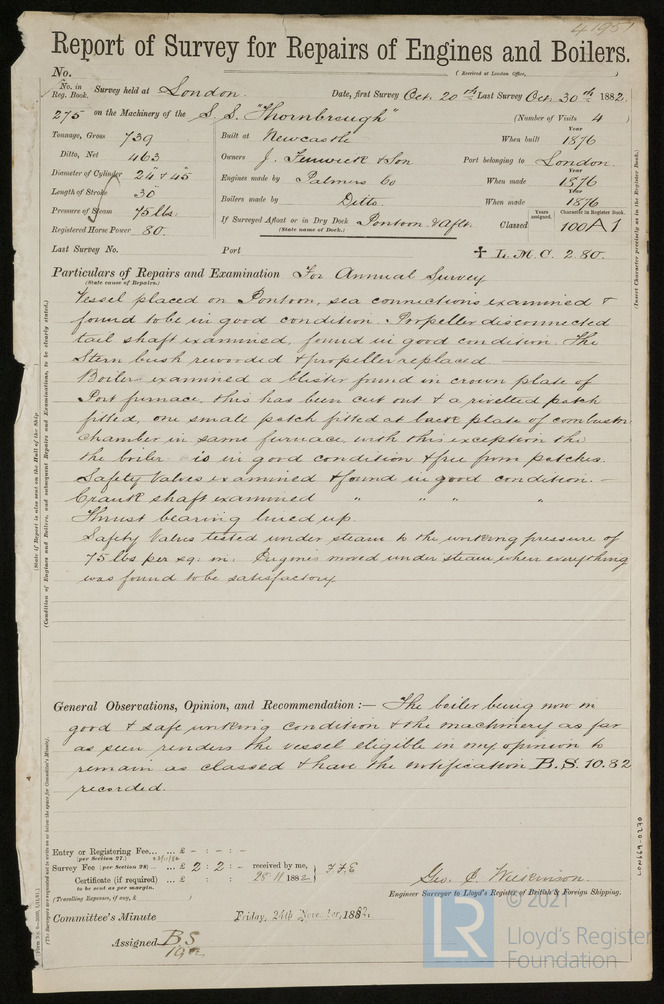 41957
Report of Survey for Repairs of Engines and Boilers.
No.
(Received at London Office, )
No. in Reg. Book. Survey held at London. Date, first Survey Oct. 20th Last Survey Oct. 30th 1882.
275 on the Machinery of the S.S. "Thornbraugh" (Number of Visits 4 )
Tonnage, Gross 739 Built at Newcastle When built Year 1876
Ditto, Net 463 Owners J. Fenwick & Son Port belonging to London.
Diameter of Cylinder 24" & 45" Engines made by Palmers Co When made Year 1876
Length of Stroke 30" Boilers made by Ditto. When made Year 1876
Pressure of Steam 75 lbs If Surveyed Afloat or in Dry Dock Pontoon & Aflt. Classed Years assigned. 100 Character in Register Book. A1
(State name of Dock.)
Registered Horse Power 80.
Last Survey No. Port ✠ L.M.C. 2.80.
Particulars of Repairs and Examination For Annual Survey
(State cause of Repairs.)
Vessel placed on Pontoon, sea connections examined &
found to be in good condition. Propeller disconnected
tail shaft examined, found in good condition. The
Stern bush rewooded & propeller replaced
Boiler examined a blister found in crown plate of
Port furnace, this has been cut out & a rivetted patch
fitted, one small patch fitted at back plate of combustn
chamber in same furnace, with this exception the
the boiler is in good condition & free from patches.
Safety Valves examined & found in good condition. -
Crank shaft examined " " " "
Thrust bearing lined up.
Safety Valves tested under steam to the working pressure of
75 lbs per sq. in. Engines moved under steam when everything
was found to be satisfactory
General Observations, Opinion, and Recommendation :— The boiler being now in
good & safe working condition & the machinery as far
as seen renders the vessel eligible in my opinion to
remain as classed & have the notification B.S. 10.82
recorded.
Entry or Registering Fee... ... £ - : - : -
(per Section 27.)
Survey Fee (per Section 28) ... £ 2 : 2 : - received by me,
Certificate (if required) ... £ : : 28.11 1882
to be sent as per margin.
(Travelling Expenses, if any, £ )
Geo. C. Wilkinson.
Engineer Surveyor to Lloyd's Register of British & Foreign Shipping.
Committee's Minute Friday, 24th November, 1882.
Assigned B.S
10.82
(Insert Character precisely as in the Register Book.)
(State if Report is also sent on the Hull of the Ship.
(Condition of Engines and Boilers, and subsequent Repairs and Examinations, to be clearly stated.)
(The Surveyors are requested not to write on or below the space for Committee's Minute).
LON669-0270
LR
© 2021
Lloyd's Register
Foundation